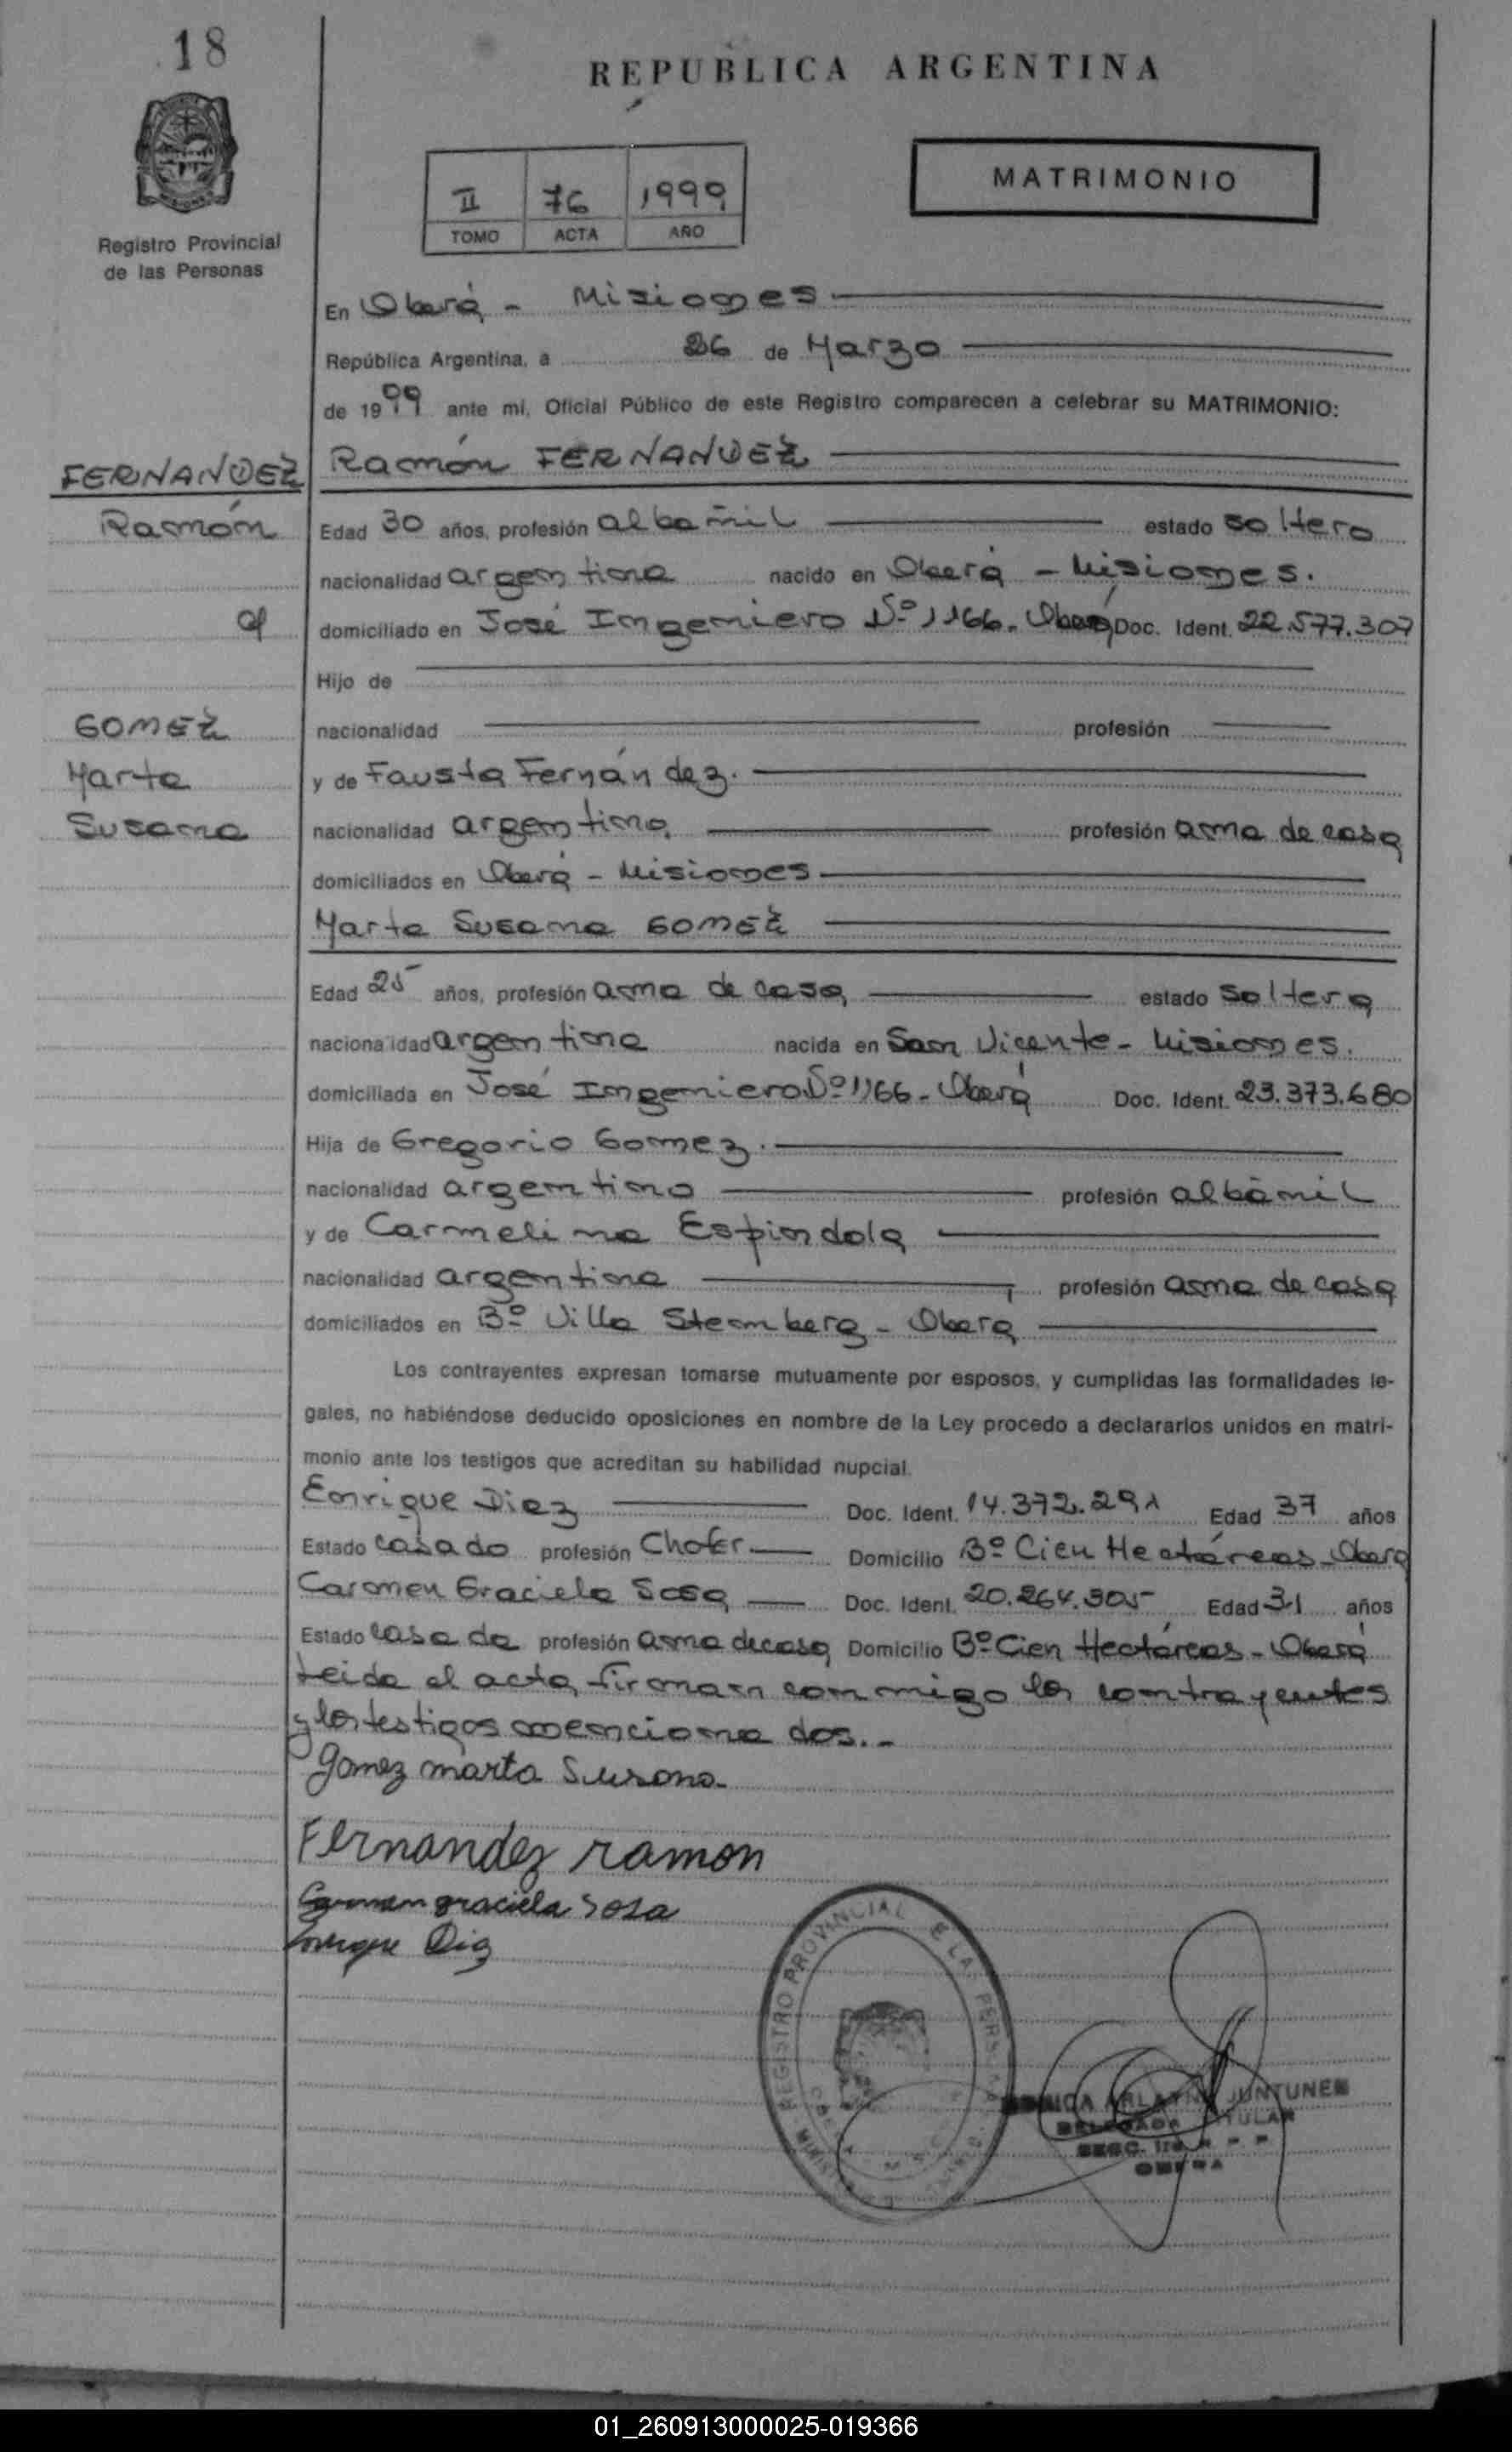 18
REPUBLICA ARGENTINA
MATRIMONIO
II 76 1999
TOMO ACTA AÑO
Registro Provincial
de las Personas
En Oberá - Misiones
República Argentina, a 26 de Marzo
de 1999 ante mi, Oficial Público de este Registro comparecen a celebrar su MATRIMONIO:
FERNANDEZ
Ramón
c/
GOMEZ
Marta
Susana
Ramón FERNANDEZ
Edad 30 años, profesión albañil estado soltero
nacionalidad argentina nacido en Oberá - Misiones.
domiciliado en José Ingeniero Nº 1166 - Oberá Doc. Ident. 22.577.307
Hijo de
nacionalidad profesión
y de Fausta Fernández.
nacionalidad argentina profesión ama de casa
domiciliados en Oberá - Misiones
Marta Susana GOMEZ
Edad 25 años, profesión ama de casa estado soltera
nacionalidad argentina nacida en San Vicente - Misiones.
domiciliada en José Ingeniero Nº 1166 - Oberá Doc. Ident. 23.373.680
Hija de Gregorio Gomez.
nacionalidad argentino profesión albañil
y de Carmelina Espindola
nacionalidad argentina profesión ama de casa
domiciliados en Bº Villa Stemberg - Oberá
Los contrayentes expresan tomarse mutuamente por esposos, y cumplidas las formalidades le-
gales, no habiéndose deducido oposiciones en nombre de la Ley procedo a declararlos unidos en matri-
monio ante los testigos que acreditan su habilidad nupcial.
Enrique Diez Doc. Ident. 14.372.291 Edad 37 años
Estado casado profesión Chofer Domicilio Bº Cien Hectáreas - Oberá
Carmen Graciela Sosa Doc. Ident. 20.264.305 Edad 31 años
Estado casada profesión ama de casa Domicilio Bº Cien Hectáreas - Oberá
Leida el acta, firman conmigo los contrayentes
y los testigos mencionados.-
Gomez marta Susana
Fernandez ramon
Carmen graciela Sosa
Enrique Diez
REGISTRO PROVINCIAL DE LAS PERSONAS
JUNTUNEN
DELEGADA TITULAR
SECC. 1ra
OBERA
01_260913000025-019366